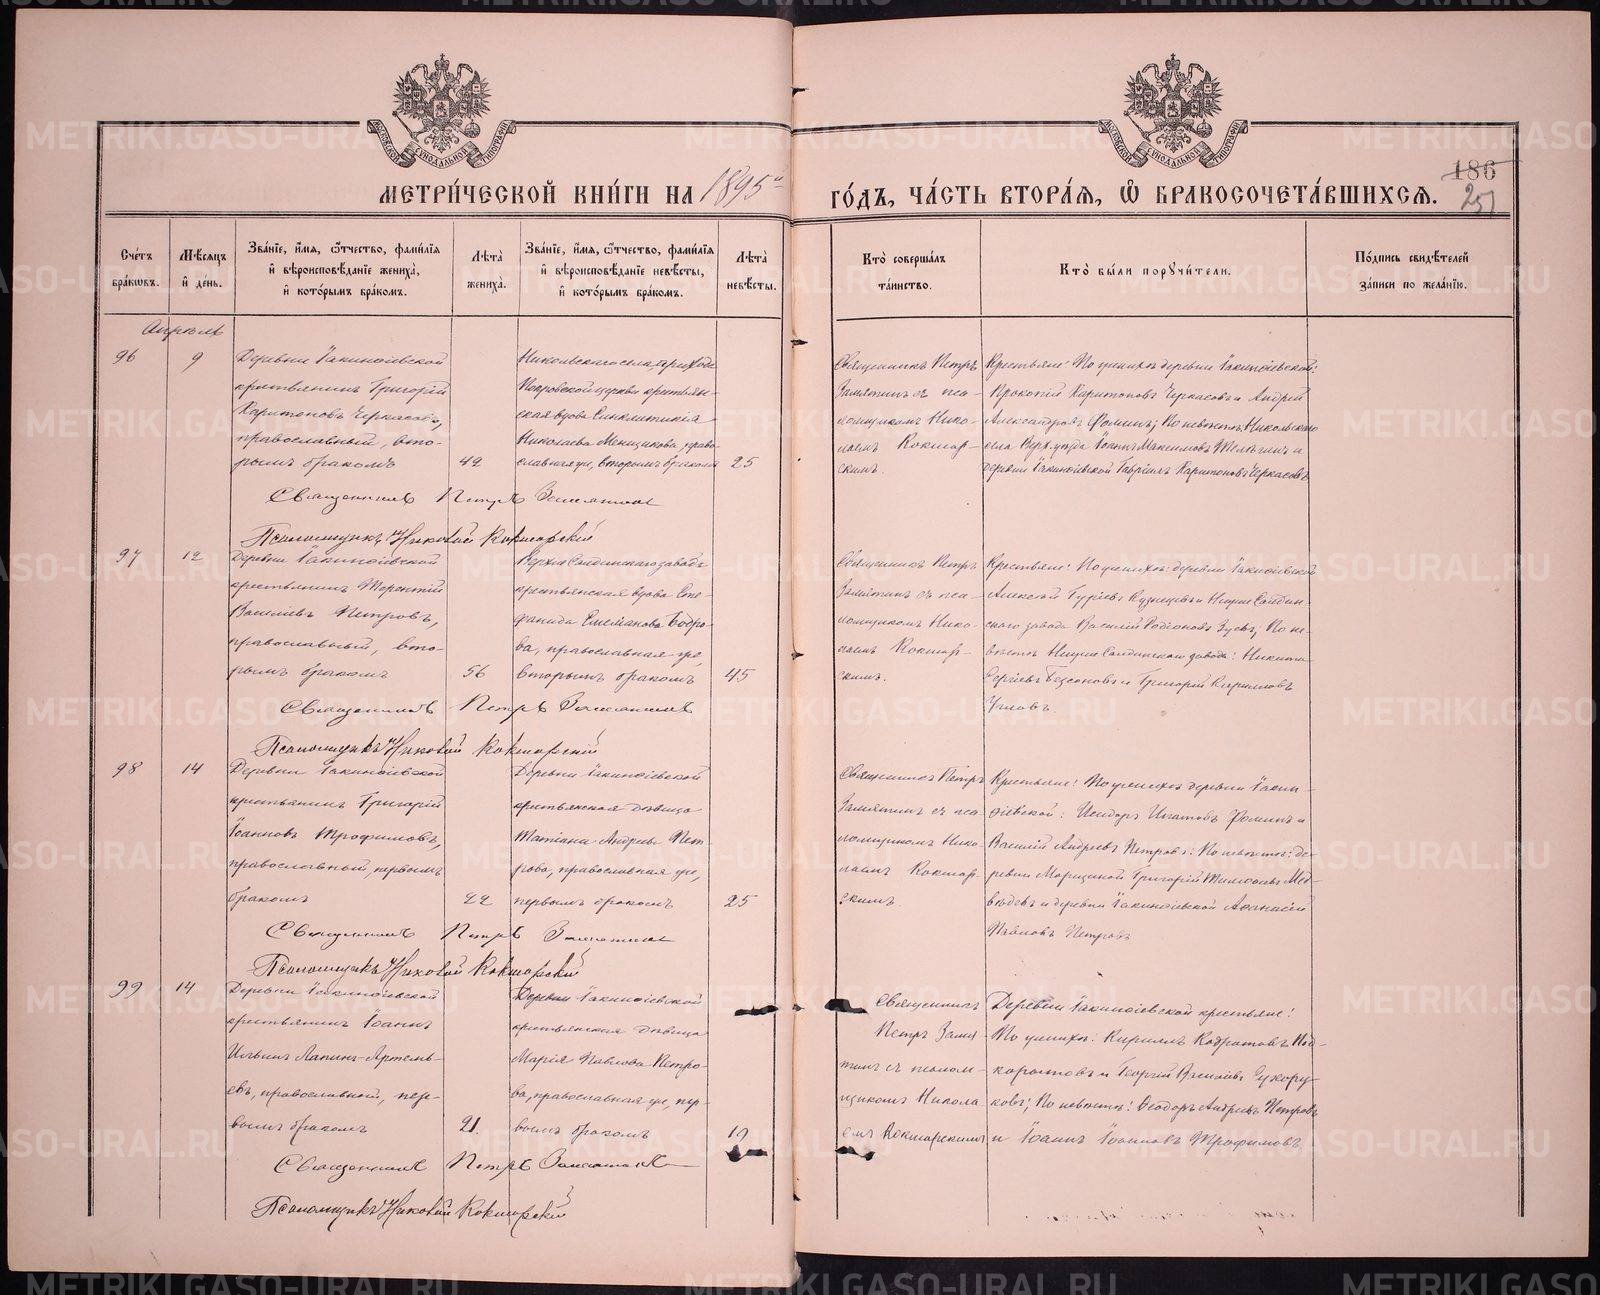 МЕТРИ́ЧЕСКОЙ КНИ́ГИ НА 1895й
ГО́ДЪ, ЧА́СТЬ ВТОРА́Я, Ѽ БРАКОСОЧЕТА́ВШИХСЯ.
186
251
Счётъ бра́ковъ.
Мѣ́сяцъ и҆ де́нь.
Зва́нїе, и҆́мя, ѻ҆́тчество, фами́лїя
и҆ вѣроисповѣ́данїе жениха̀,
и҆ кото́рымъ бра́комъ.
Лѣта̀ жениха̀.
Зва́нїе, и҆́мя, ѻ҆́тчество, фами́лїя
и҆ вѣроисповѣ́данїе невѣ́сты,
и҆ кото́рымъ бра́комъ.
Лѣта̀ невѣ́сты.
Кто̀ соверша́лъ та́инство.
Кто̀ бы́ли порꙋчи́тели.
По́дпись свидѣ́телей за́писи по жела́нїю.
Апрѣль
96
9
Деревни Іакинѳіевской
крестьянинъ Григорій
Харитоновъ Черкасовъ,
православный, вто-
рымъ бракомъ
42
Никольскаго села, прихода
Петровской церкви крестьян-
ская вдова Синклитикія
Николаева Менщикова, право
славная же, вторымъ бракомъ
25
Священникъ Петръ
Замятинъ съ пса-
ломщикомъ Нико-
лаемъ Кокшар-
скимъ.
Крестьяне: По женихѣ деревни Іакинѳіевской:
Прокопій Харитоновъ Черкасовъ и Андрей
Александровъ Ѳоминъ; По невѣстѣ: Никольскаго
села Верх. уѣзда Іоаннъ Максимовъ Телѣгинъ и
деревни Іакинѳіевской Гавріилъ Харитоновъ Черкасовъ
Священникъ Петръ Замятинъ
Псаломщикъ Николай Кокшарскій
97
12
Деревни Іакинѳіевской
крестьянинъ Терентій
Василіевъ Петровъ,
православный, вто-
рымъ бракомъ
56
Верхне Салдинскаго завода
крестьянская вдова Сте-
фанида Емеліанова Бобро-
ва, православная же,
вторымъ бракомъ
45
Священникъ Петръ
Замятинъ съ пса-
ломщикомъ Нико-
лаемъ Кокшар-
скимъ.
Крестьяне: По женихѣ: деревни Іакинѳіевской
Алексѣй Гуріевъ Кузнецовъ и Нижне Салдин-
скаго завода Василій Родіоновъ Зуевъ; По не-
вѣстѣ Нижне Салдинскаго завода: Никита
Сергіевъ Безсоновъ и Григорій Кирилловъ
Священникъ Петръ Замятинъ
Псаломщикъ Николай Кокшарскій
98
14
Деревни Іакинѳіевской
крестьянинъ Григорій
Іоанновъ Трофимовъ,
православный, первымъ
бракомъ
22
Деревни Іакинѳіевской
крестьянская дѣвица
Татіана Андреева Пет
рова, православная же,
первымъ бракомъ
25
Священникъ Петръ
Замятинъ съ пса
ломщикомъ Нико-
лаемъ Кокшар-
скимъ.
Крестьяне: По женихѣ деревни Іакин-
ѳіевской: Исидоръ Игнатовъ Ѳоминъ и
Василій Андреевъ Петровъ: По невѣстѣ: де-
ревни Морщиной Григорій Мед-
вѣдевъ и деревни Іакинѳіевской Аѳанасій
Павловъ Петровъ
Священникъ Петръ Замятинъ
Псаломщикъ Николай Кокшарскій
99
14
Деревни Іакинѳіевской
крестьянинъ Іоаннъ
Ильинъ Лапинъ-Артемь-
евъ, православный, пер-
вымъ бракомъ
21
Деревни Іакинѳіевской
крестьянская дѣвица
Марія Павлова Петро-
ва, православная же, пер-
вымъ бракомъ
19
Священникъ
Петръ Замя
тинъ съ псалом-
щикомъ Никола
емъ Кокшарскимъ
Деревни Іакинѳіевской крестьяне:
По женихѣ: Кириллъ Кодратовъ Под-
корытовъ и Георгій Василіевъ Сухору-
ковъ; По невѣстѣ: Ѳеодоръ Андреевъ Петровъ
и Іоаннъ Іоанновъ Трофимовъ
Священникъ Петръ Замятинъ
Псаломщикъ Николай Кокшарскій
METRIKI.GASO-URAL.RU